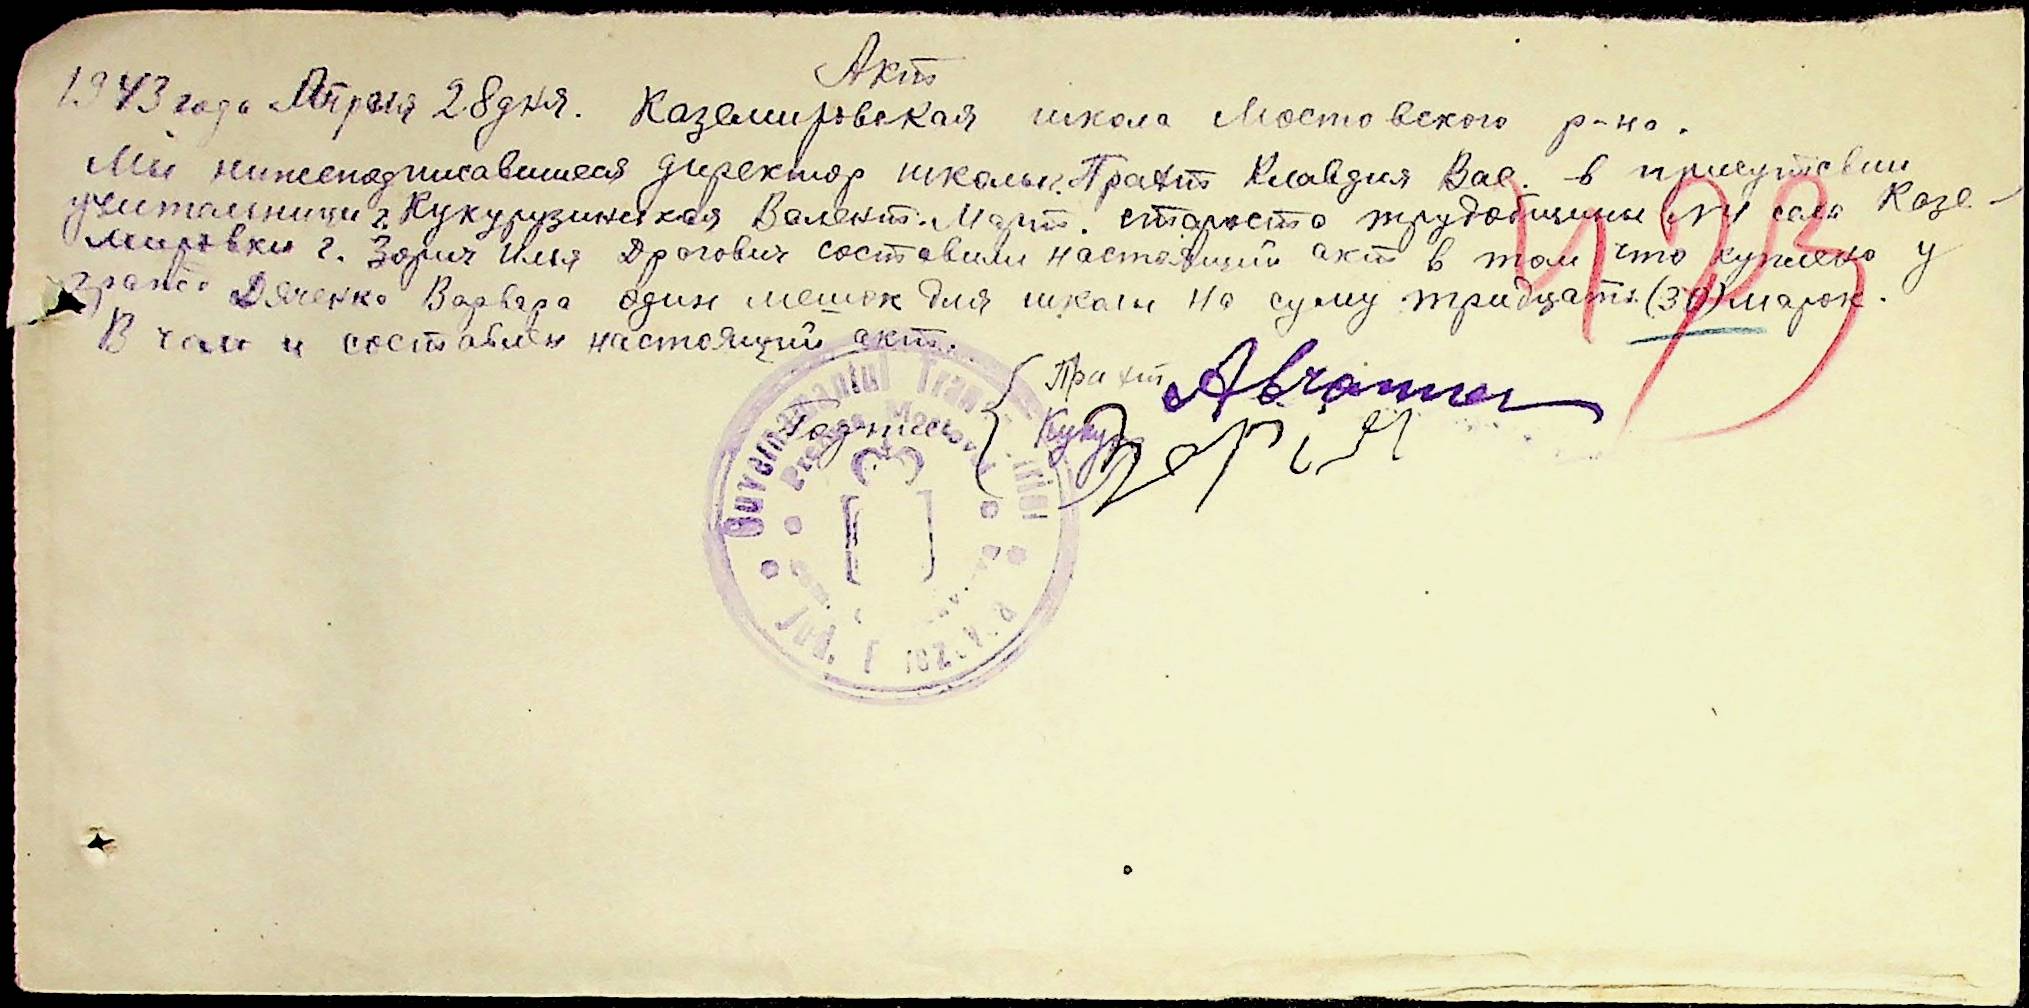 Акт
1943 года Апреля 28 дня. Каземировская школа Мостовского р-на.
Мы нижеподписавшиеся директор школы г. Прахт Клавдия Вас. в присутствии
учительници г. Кукурузинская Валент. Март. староста трудобщины №1 села Казе-
мировки г. Зорич Илья Дрогович составили настоящий акт в том что куплено у
Дяченко Варвара один мешок для школы на сумму тридцать (30) марок.
В чем и составлен настоящий акт.
193
Подписи
Прахт
Куку
Зорич
Guvernamantul Tran
Pretura Mostovoi
Jud.